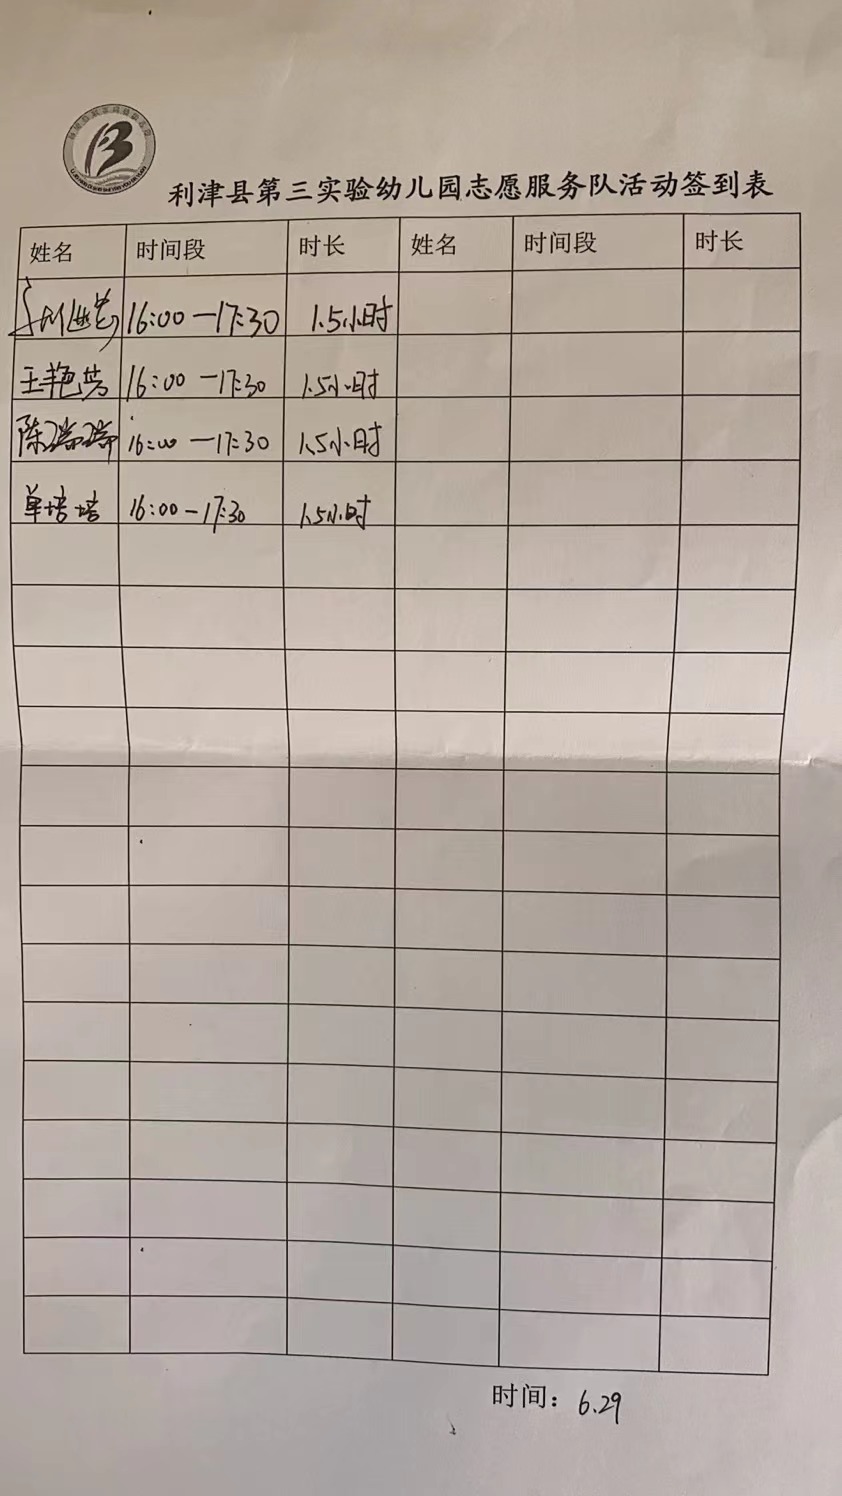 利津县第三实验幼儿园志愿服务队活动签到表
姓名 时间段 时长 姓名 时间段 时长
16:00—17:30 1.5小时
王艳芳 16:00—17:30 1.5小时
陈瑞瑞 16:00—17:30 1.5小时
单培培 16:00—17:30 1.5小时
时间：6.29